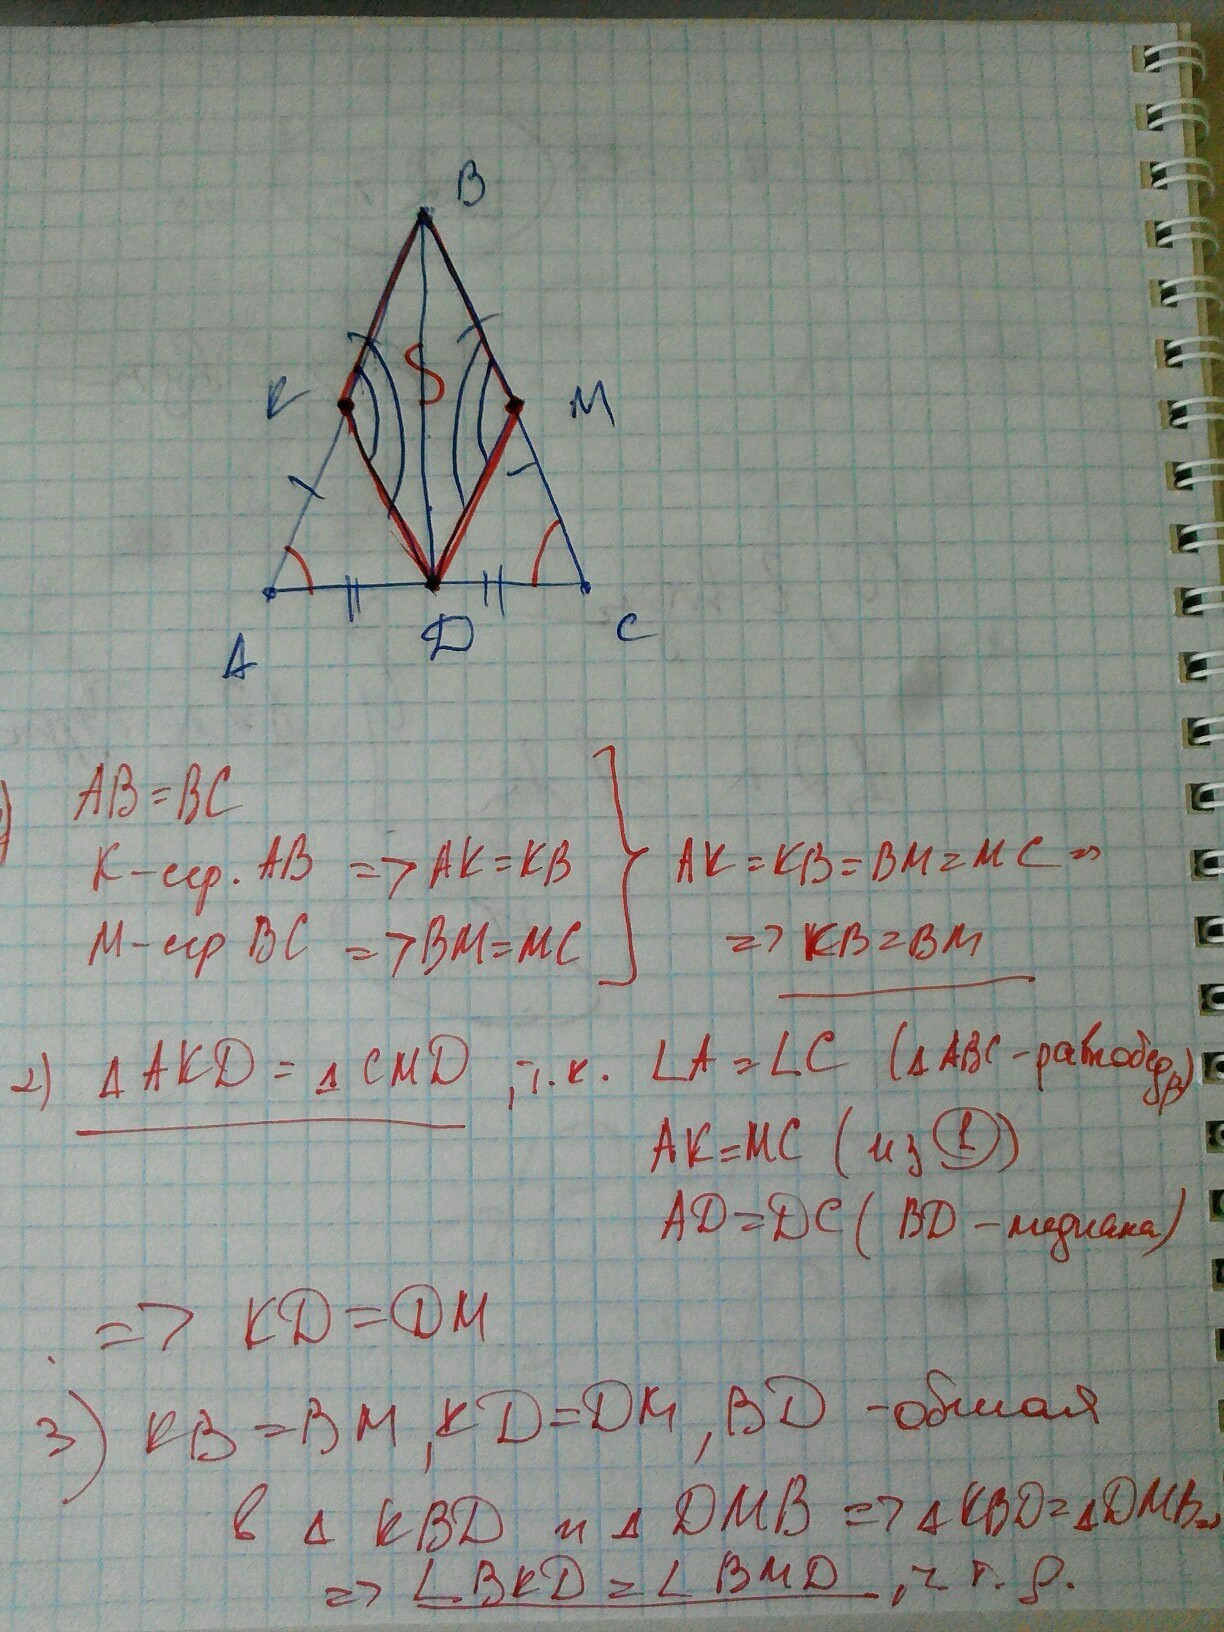 B
K
M
A
D
C
AB=BC
K-сер. AB => AK=KB
M-сер BC => BM=MC
AK=KB=BM=MC =>
=> KB=BM
2) ΔAKD = ΔCMD, т.к. ∠A=∠C (ΔABC-равнобедр)
AK=MC (из ①)
AD=DC (BD-медиана)
=> KD=DM
3) KB=BM, KD=DM, BD-общая
в Δ KBD и Δ DMB => ΔKBD=ΔDMB =>
=> ∠BKD=∠BMD, ч.т.д.